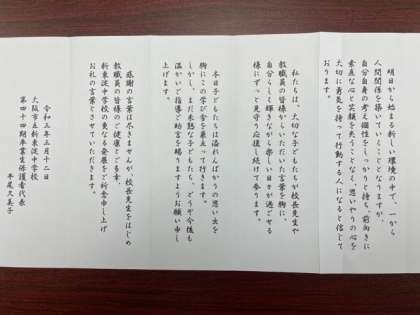 明日から始まる新しい環境の中で、一から
人間関係を築いていくこととなりますが、
自分自身の考えと個性をしっかりと持ち、前向きに
素直な心と笑顔を失うことなく、思いやりの心を
大切に勇気を持って行動する人になると信じて
おります。
私たちは、大切な子どもたちが校長先生や
教職員の皆様からいただいた言葉を胸に、
自分らしく輝きながら楽しい日々が過ごせる
様にずっと見守り応援し続けて参ります。
本日子どもたちは溢れんばかりの思い出を
胸にこの学び舎を巣立って行きます。
しかし、まだ未熟な子どもたち、どうぞ今後も
温かいご指導ご助言を賜りますようお願い申し
上げます。
感謝の言葉は尽きませんが、校長先生をはじめ
教職員の皆様のご健康とご多幸、
新東淀中学校の更なる発展をご祈念申し上げ
お礼の言葉とさせていただきます。
令和三年三月十二日
大阪市立新東淀中学校
第四十四期卒業生保護者代表
平尾久美子